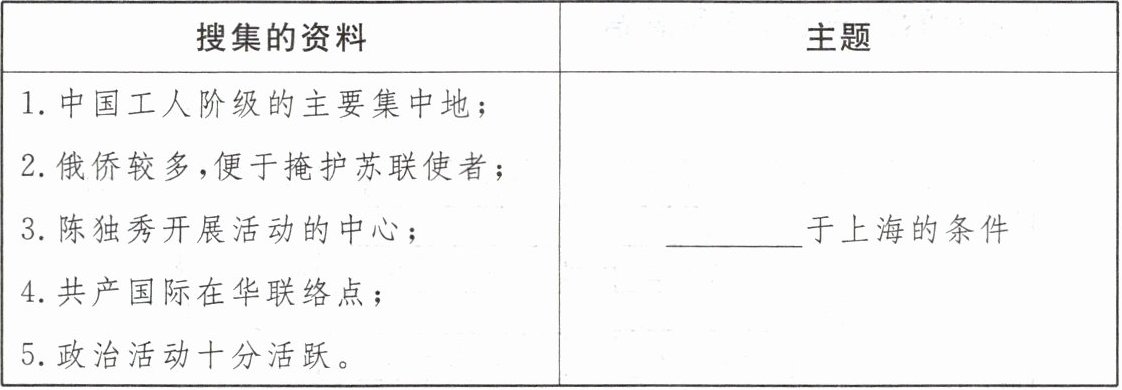 搜集的资料
主题
1.中国工人阶级的主要集中地;
2.俄侨较多,便于掩护苏联使者;
3.陈独秀开展活动的中心;
4.共产国际在华联络点;
5.政治活动十分活跃。
________于上海的条件